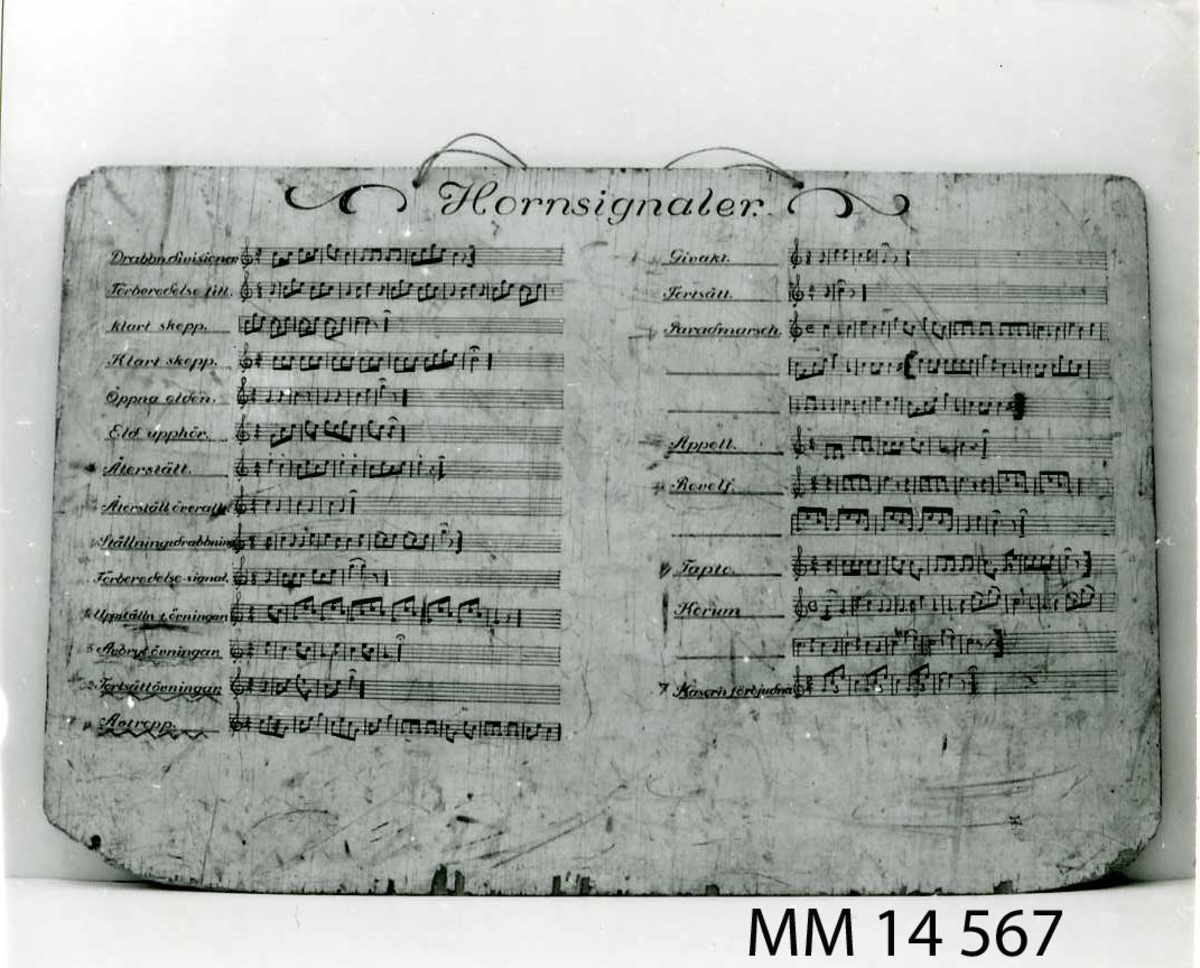 Hornsignaler.
Drabbn.divisioner
Förberedelse till.
klart skepp.
Klart skepp.
Öppna elden.
Eld upphör.
Återställ.
Återställ överallt.
Ställningsdrabbning
Förberedelse-signal.
Uppställn t. övningan
Avbryt övningan
Fortsätt övningan
Avtropp.
Givakt.
Fortsätt.
Paradmarsch.
Appell.
Revelj.
Tapto.
Korum
7 Kasern förbjudna
MM 14 567